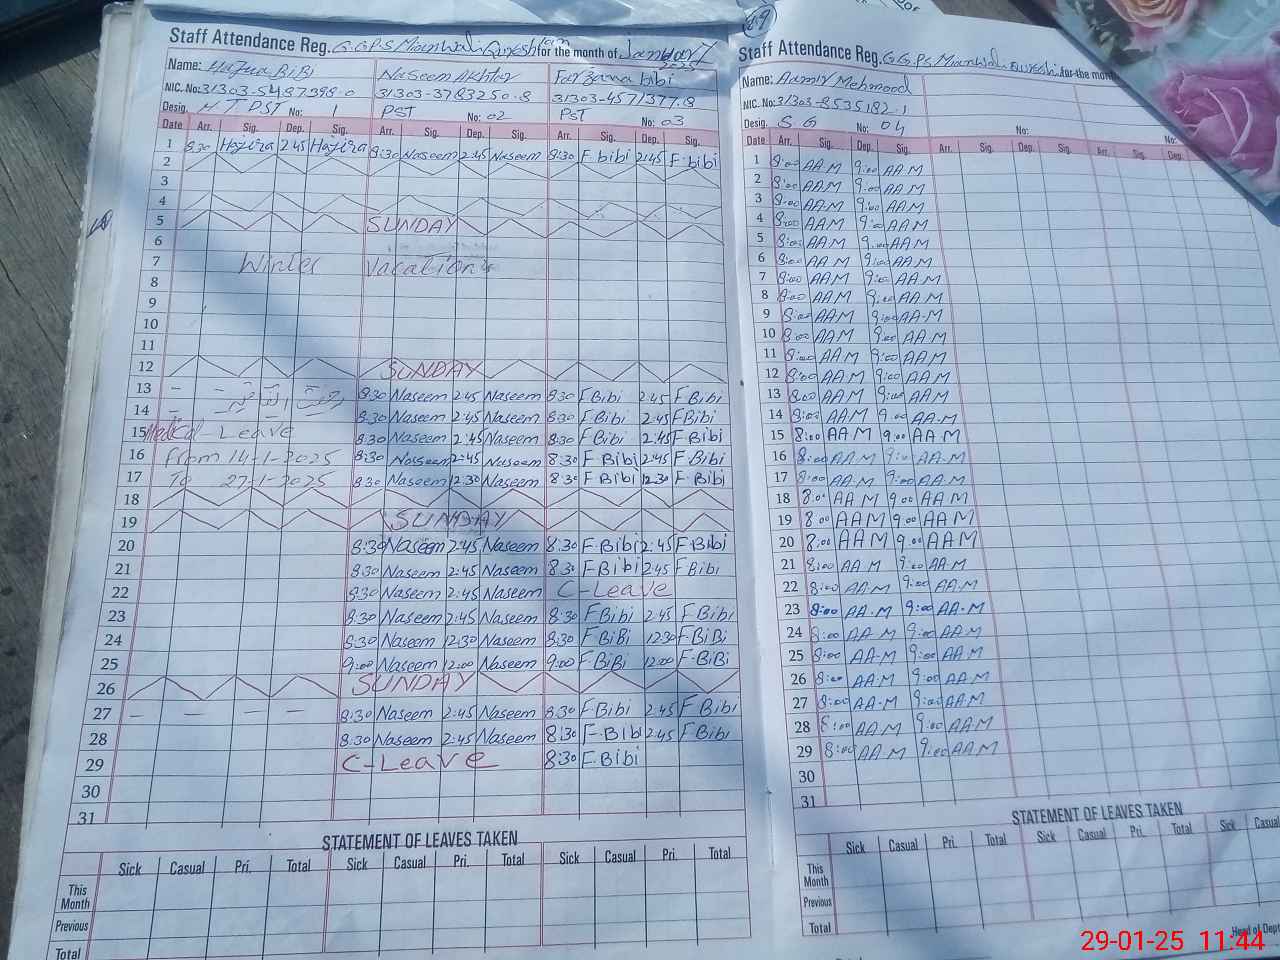 Staff Attendance Reg. G.G.P.S Mianwali Qureshian for the month of January
Name: Hajra BiBi Naseem Akhtar Farzana bibi
NIC. No: 31303-5487398-0 31303-3783250-8 31303-4571377-8
Desig. H T PST No: 1 PST No: 02 PST No: 03
Date Arr. Sig. Dep. Sig. Arr. Sig. Dep. Sig. Arr. Sig. Dep. Sig.
1 8:30 Hajira 2:45 Hajira 8:30 Naseem 2:45 Naseem 8:30 F.bibi 2:45 F.bibi
2
3
4
5 SUNDAY
6
7 Winter Vacation
8
9
10
11
12 SUNDAY
13 8:30 Naseem 2:45 Naseem 8:30 F Bibi 2:45 F Bibi
14 8:30 Naseem 2:45 Naseem 8:30 F Bibi 2:45 F Bibi
15 Medical-Leave 8:30 Naseem 2:45 Naseem 8:30 F Bibi 2:45 F Bibi
16 From 14-1-2025 8:30 Naseem 2:45 Naseem 8:30 F Bibi 2:45 F Bibi
17 To 27-1-2025 8:30 Naseem 12:30 Naseem 8:30 F Bibi 12:30 F Bibi
18
19 SUNDAY
20 8:30 Naseem 2:45 Naseem 8:30 F-Bibi 2:45 F Bibi
21 8:30 Naseem 2:45 Naseem 8:30 F Bibi 2:45 F Bibi
22 8:30 Naseem 2:45 Naseem C-Leave
23 8:30 Naseem 2:45 Naseem 8:30 F Bibi 2:45 F Bibi
24 8:30 Naseem 12:30 Naseem 8:30 F-BiBi 12:30 F BiBi
25 9:00 Naseem 12:00 Naseem 9:00 F-BiBi 12:00 F-BiBi
26 SUNDAY
27 8:30 Naseem 2:45 Naseem 8:30 F Bibi 2:45 F Bibi
28 8:30 Naseem 2:45 Naseem 8:30 F-Bibi 2:45 F Bibi
29 C-Leave 8:30 F.Bibi
30
31
STATEMENT OF LEAVES TAKEN
Sick Casual Pri. Total Sick Casual Pri. Total Sick Casual Pri. Total
This Month
Previous
Total
Staff Attendance Reg. G.G.P.S Mianwali Qureshi for the month
Name: Aamir Mehmood
NIC. No: 31303-8535182-1
Desig. S G No: 04 No: No:
Date Arr. Sig. Dep. Sig. Arr. Sig. Dep. Sig. Arr. Sig. Dep.
1 8:00 AAM 9:00 AAM
2 8:00 AAM 9:00 AAM
3 8:00 AAM 9:00 AAM
4 8:00 AAM 9:00 AAM
5 8:00 AAM 9:00 AAM
6 8:00 AAM 9:00 AAM
7 8:00 AAM 9:00 AAM
8 8:00 AAM 9:00 AAM
9 8:00 AAM 9:00 AA-M
10 8:00 AAM 9:00 AAM
11 8:00 AAM 9:00 AAM
12 8:00 AAM 9:00 AAM
13 8:00 AAM 9:00 AAM
14 8:00 AAM 9:00 AA.M
15 8:00 AAM 9:00 AAM
16 8:00 AAM 9:00 AA-M
17 8:00 AAM 9:00 AAM
18 8:00 AAM 9:00 AAM
19 8:00 AAM 9:00 AAM
20 8:00 AAM 9:00 AAM
21 8:00 AAM 9:00 AAM
22 8:00 AAM 9:00 AAM
23 8:00 AA.M 9:00 AA.M
24 8:00 AA-M 9:00 AAM
25 8:00 AA-M 9:00 AAM
26 8:00 AA.M 9:00 AAM
27 8:00 AA-M 9:00 AAM
28 8:00 AAM 9:00 AAM
29 8:00 AAM 9:00 AAM
30
31
STATEMENT OF LEAVES TAKEN
Sick Casual Pri. Total Sick Casual Pri. Total Sick Casual
This Month
Previous
Total
Head of Dept
29-01-25 11:44